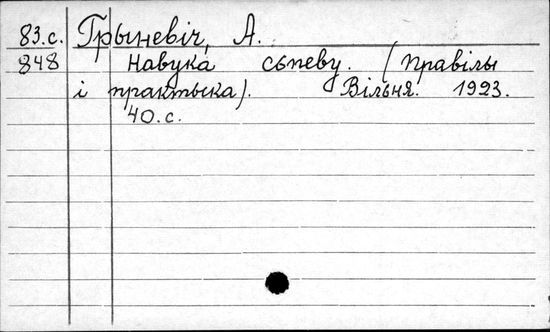 83.с. Грыневіч, А.
848 Навука сьпеву. (Правілы
і практыка). Вільня. 1923.
40.с.